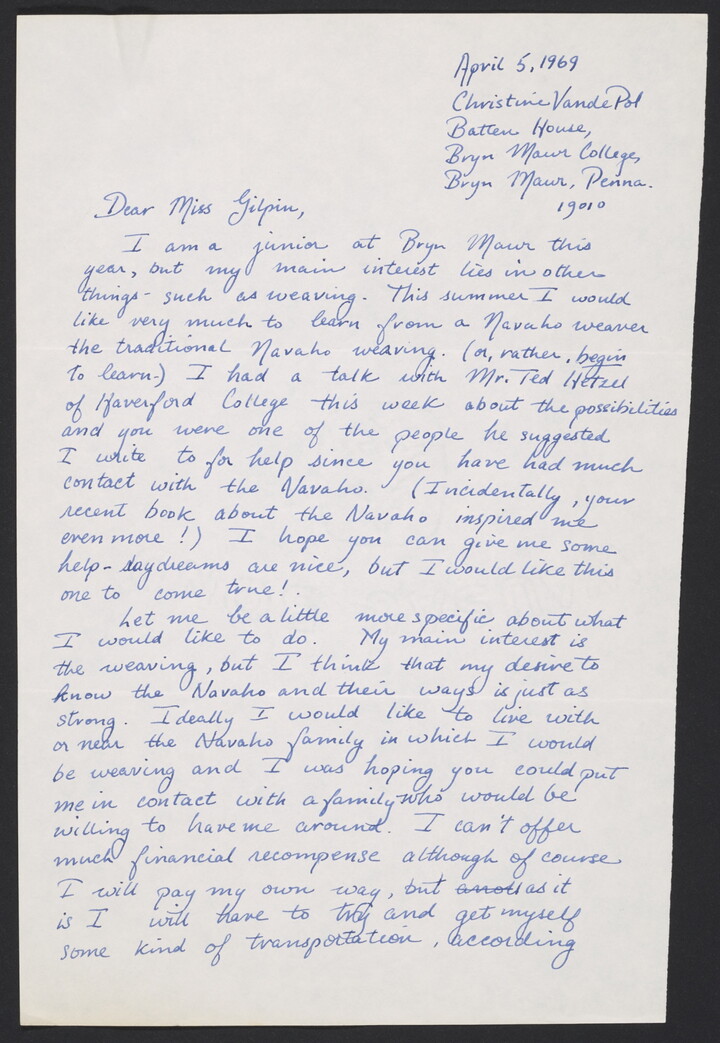 April 5, 1969
Christine VandePol
Batten House,
Bryn Mawr College,
Bryn Mawr, Penna.
19010
Dear Miss Gilpin,
I am a junior at Bryn Mawr this
year, but my main interest lies in other
things - such as weaving. This summer I would
like very much to learn from a Navaho weaver
the traditional Navaho weaving. (or, rather, begin
to learn.) I had a talk with Mr. Ted Hetzel
of Haverford College this week about the possibilities
and you were one of the people he suggested
I write to for help since you have had much
contact with the Navaho. (Incidentally, your
recent book about the Navaho inspired me
even more!) I hope you can give me some
help - daydreams are nice, but I would like this
one to come true!
Let me be a little more specific about what
I would like to do. My main interest is
the weaving, but I think that my desire to
know the Navaho and their ways is just as
strong. Ideally I would like to live with
or near the Navaho family in which I would
be weaving and I was hoping you could put
me in contact with a family who would be
willing to have me around. I can't offer
much financial recompense although of course
I will pay my own way, but as it
is I will have to try and get myself
some kind of transportation, according